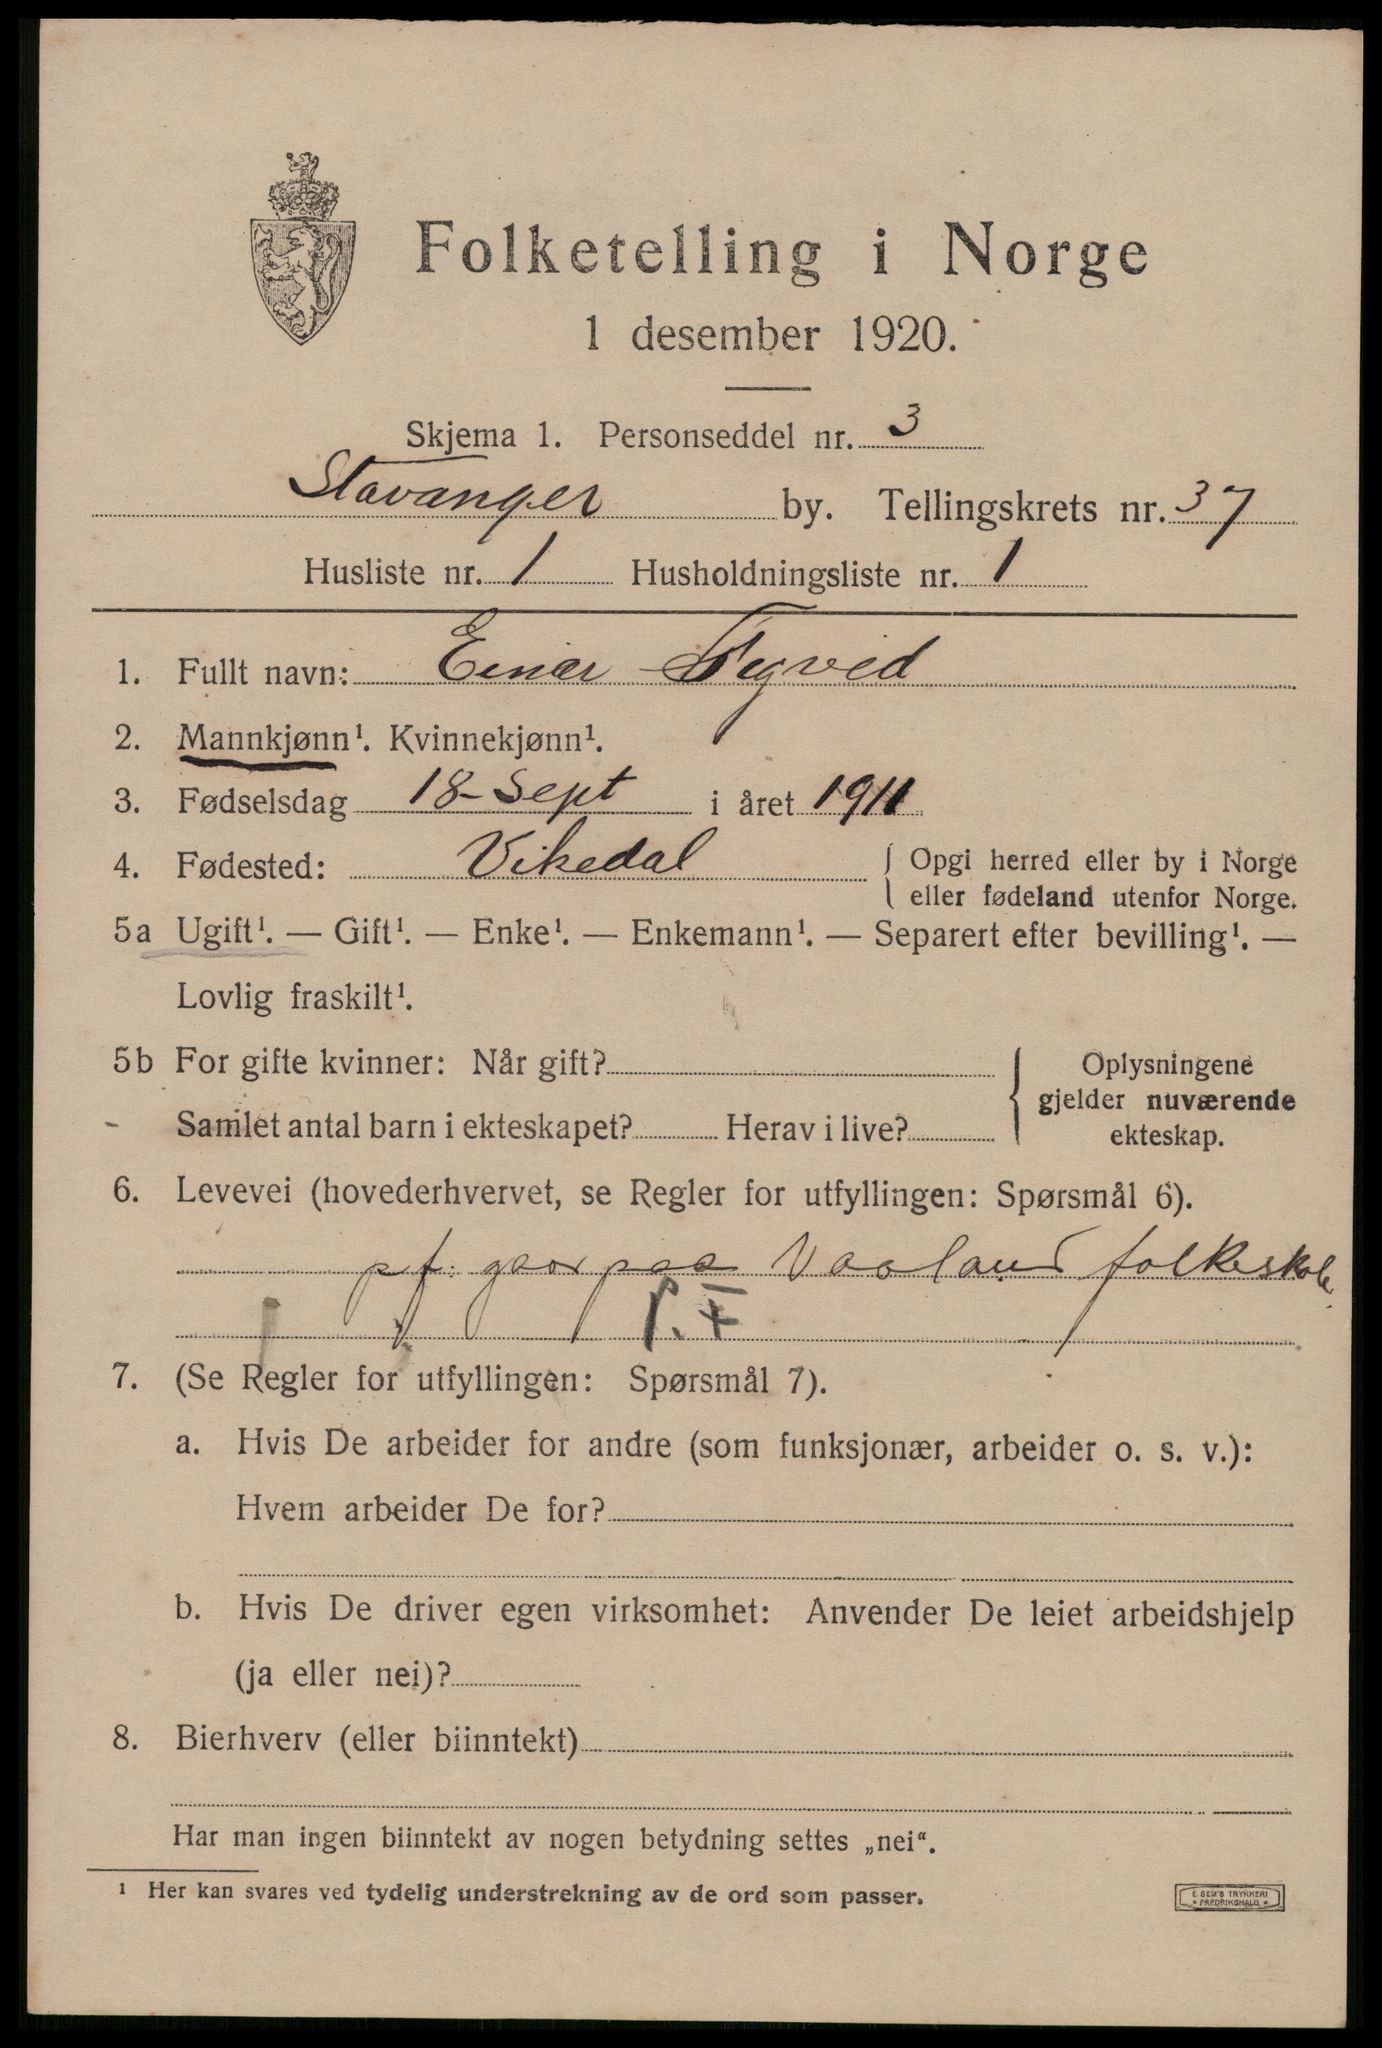 Folketelling i Norge
1 desember 1920.
Skjema 1. Personseddel nr. 3
Stavanger by. Tellingskrets nr. 37
Husliste nr. 1 Husholdningsliste nr. 1
1. Fullt navn: Einar
2. Mannkjønn¹. Kvinnekjønn¹.
3. Fødselsdag 18-Sept i året 1911
4. Fødested: Vikedal { Opgi herred eller by i Norge
eller fødeland utenfor Norge.
5a Ugift¹. — Gift¹. — Enke¹. — Enkemann¹. — Separert efter bevilling¹. —
Lovlig fraskilt¹.
5b For gifte kvinner: Når gift?
Samlet antal barn i ekteskapet? Herav i live?
{ Oplysningene
gjelder nuværende
ekteskap.
6. Levevei (hovederhvervet, se Regler for utfyllingen: Spørsmål 6).
pf. gaar paa Vaaland folkeskole
7. (Se Regler for utfyllingen: Spørsmål 7).
a. Hvis De arbeider for andre (som funksjonær, arbeider o. s. v.):
Hvem arbeider De for?
b. Hvis De driver egen virksomhet: Anvender De leiet arbeidshjelp
(ja eller nei)?
8. Bierhverv (eller biinntekt)
Har man ingen biinntekt av nogen betydning settes „nei“.
¹ Her kan svares ved tydelig understrekning av de ord som passer.
E. SEM'S TRYKKERI
* FREDRIKSHALD *